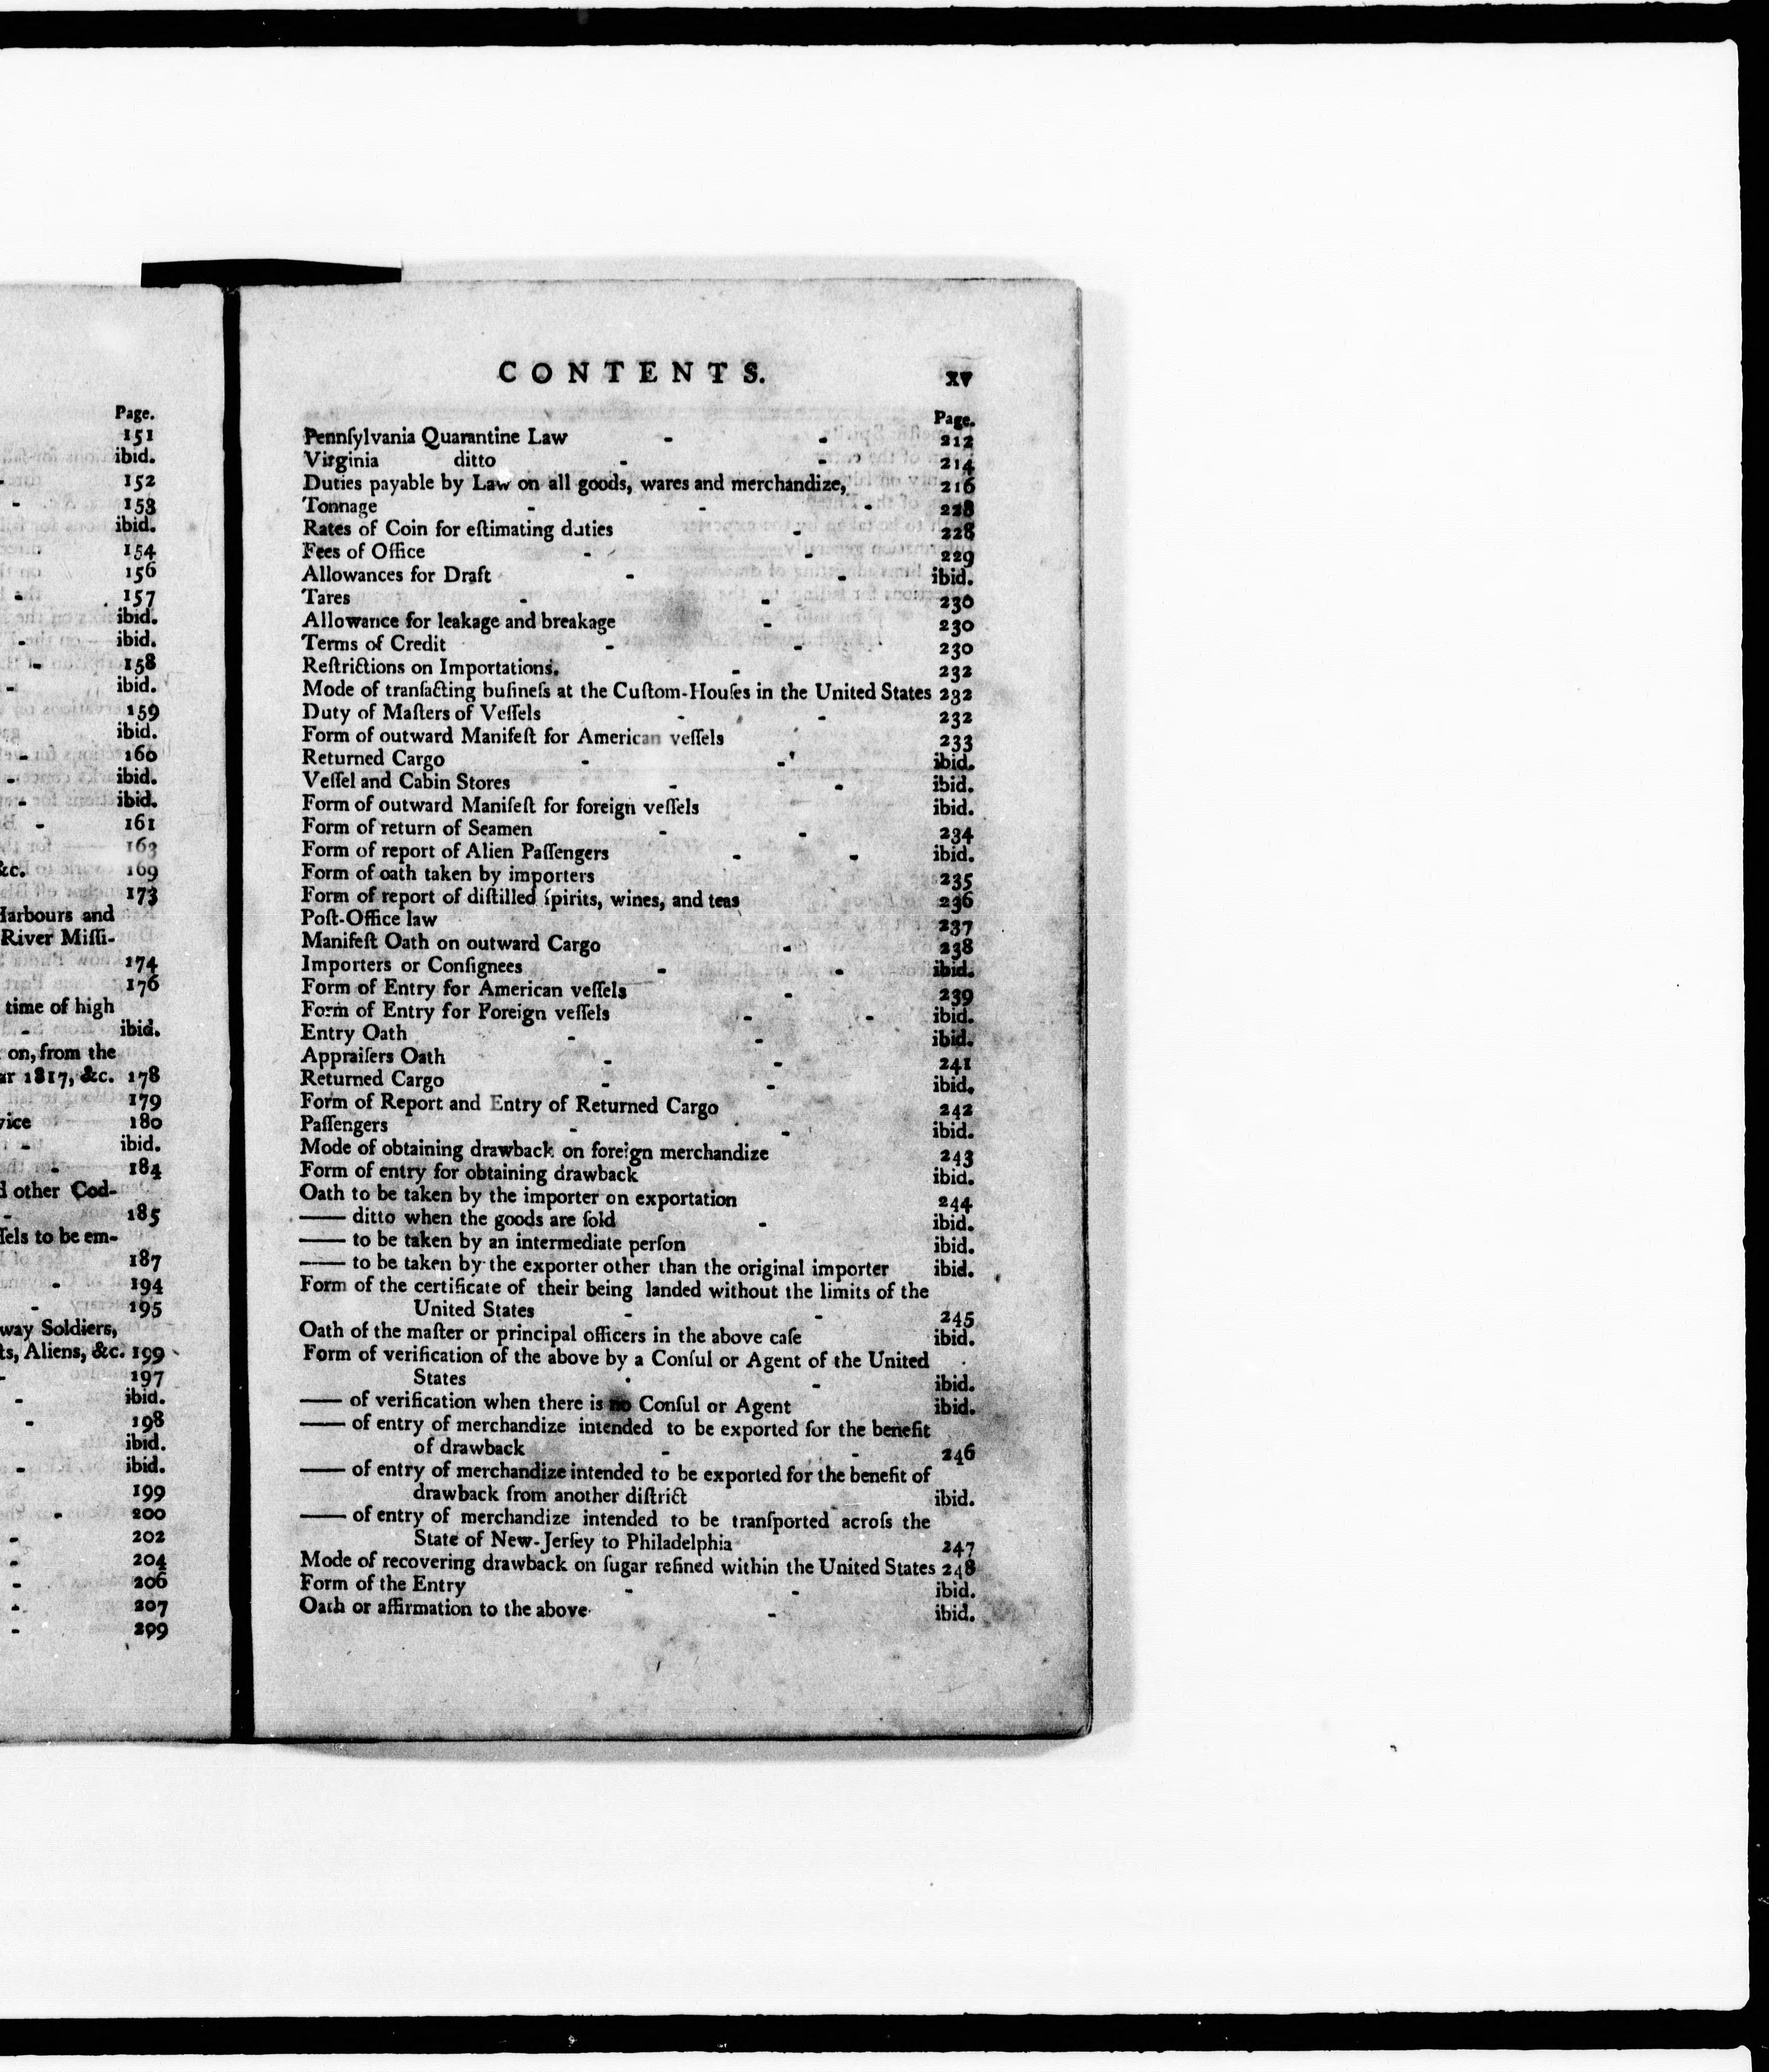 Page.
151
ibid.
- 152
- 153
ibid.
154
156
- 157
ibid.
- ibid.
- 158
- ibid.
159
ibid.
- 160
- ibid.
- ibid.
- 161
163
&c. 169
173
Harbours and
River Miſſi-
174
176
time of high
- ibid.
on, from the
ar 1817, &c. 178
179
vice 180
- ibid.
- 184
d other Cod-
- 185
ſſels to be em-
187
- 194
- 195
way Soldiers,
ts, Aliens, &c. 199
- 197
- ibid.
- 198
ibid.
- ibid.
199
- 200
- 202
- 204
- 206
- 207
- 209
CONTENTS. xv
Page.
Pennſylvania Quarantine Law - - 212
Virginia ditto - - 214
Duties payable by Law on all goods, wares and merchandize, 216
Tonnage - - - 228
Rates of Coin for eſtimating duties - 228
Fees of Office - - 229
Allowances for Draft - - ibid.
Tares - - 230
Allowance for leakage and breakage - 230
Terms of Credit - - 230
Reſtrictions on Importations. - 232
Mode of tranſacting buſineſs at the Cuſtom-Houſes in the United States 232
Duty of Maſters of Veſſels - - 232
Form of outward Manifeſt for American veſſels 233
Returned Cargo - - ibid.
Veſſel and Cabin Stores - - ibid.
Form of outward Manifeſt for foreign veſſels ibid.
Form of return of Seamen - - 234
Form of report of Alien Paſſengers - - ibid.
Form of oath taken by importers 235
Form of report of diſtilled ſpirits, wines, and teas 236
Poſt-Office law 237
Manifeſt Oath on outward Cargo - 238
Importers or Conſignees - - ibid.
Form of Entry for American veſſels - 239
Form of Entry for Foreign veſſels - - ibid.
Entry Oath - - ibid.
Appraiſers Oath - - 241
Returned Cargo - - ibid.
Form of Report and Entry of Returned Cargo 242
Paſſengers - - ibid.
Mode of obtaining drawback on foreign merchandize 243
Form of entry for obtaining drawback ibid.
Oath to be taken by the importer on exportation 244
—— ditto when the goods are ſold - ibid.
—— to be taken by an intermediate perſon ibid.
—— to be taken by the exporter other than the original importer ibid.
Form of the certificate of their being landed without the limits of the
United States - - 245
Oath of the maſter or principal officers in the above caſe ibid.
Form of verification of the above by a Conſul or Agent of the United
States - - ibid.
—— of verification when there is no Conſul or Agent ibid.
—— of entry of merchandize intended to be exported for the benefit
of drawback - - 246
—— of entry of merchandize intended to be exported for the benefit of
drawback from another diſtrict ibid.
—— of entry of merchandize intended to be tranſported acroſs the
State of New-Jerſey to Philadelphia 247
Mode of recovering drawback on ſugar refined within the United States 248
Form of the Entry - - ibid.
Oath or affirmation to the above - ibid.